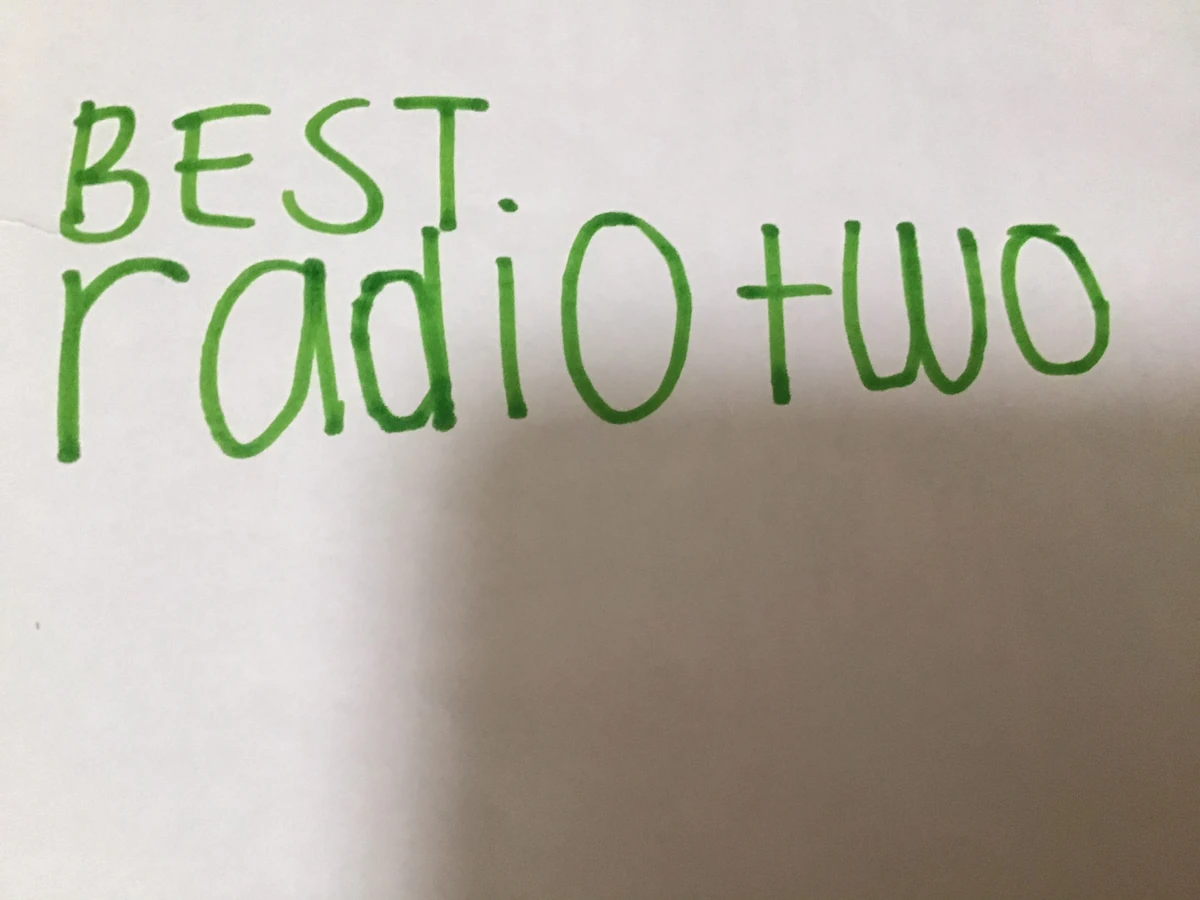 BEST
radio two